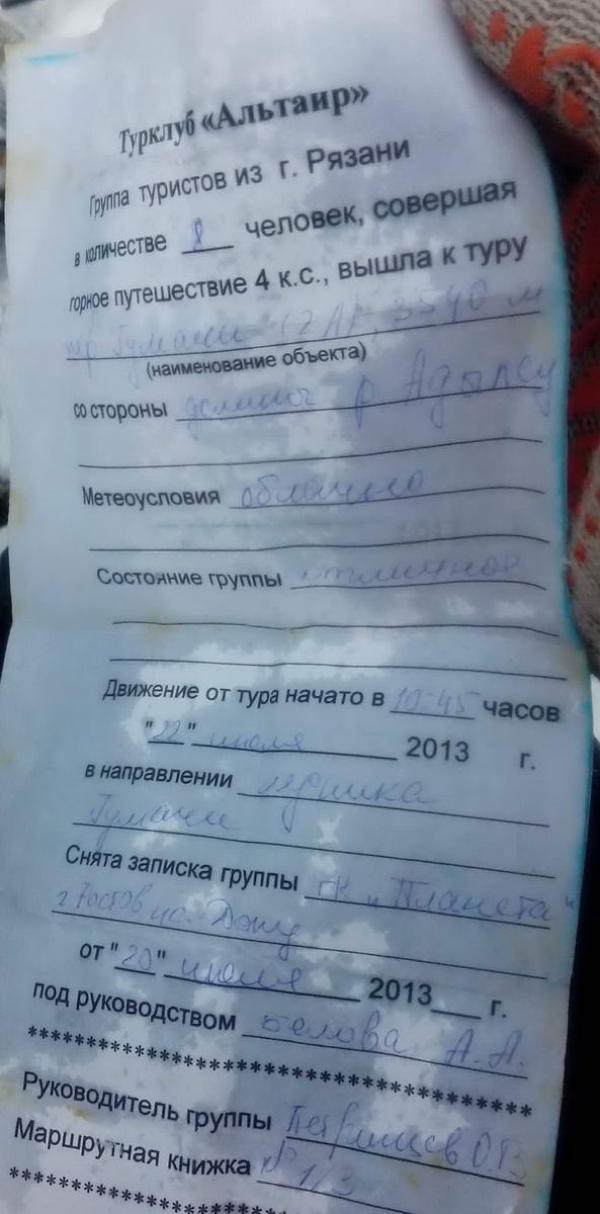 Турклуб «Альтаир»
Группа туристов из г. Рязани
в количестве 8 человек, совершая
горное путешествие 4 к.с., вышла к туру
пер Гумачи (2А), 3540 м
(наименование объекта)
со стороны долины р Адылсу
Метеоусловия облачно
Состояние группы отличное
Движение от тура начато в 10-45 часов
"22" июля 2013 г.
в направлении ледника
Гумачи
Снята записка группы тк „Планета"
г. Ростов на. Дону
от "20" июля 2013 г.
под руководством Белова А.А.
************************************
Руководитель группы О.В
Маршрутная книжка № 1/3
************************